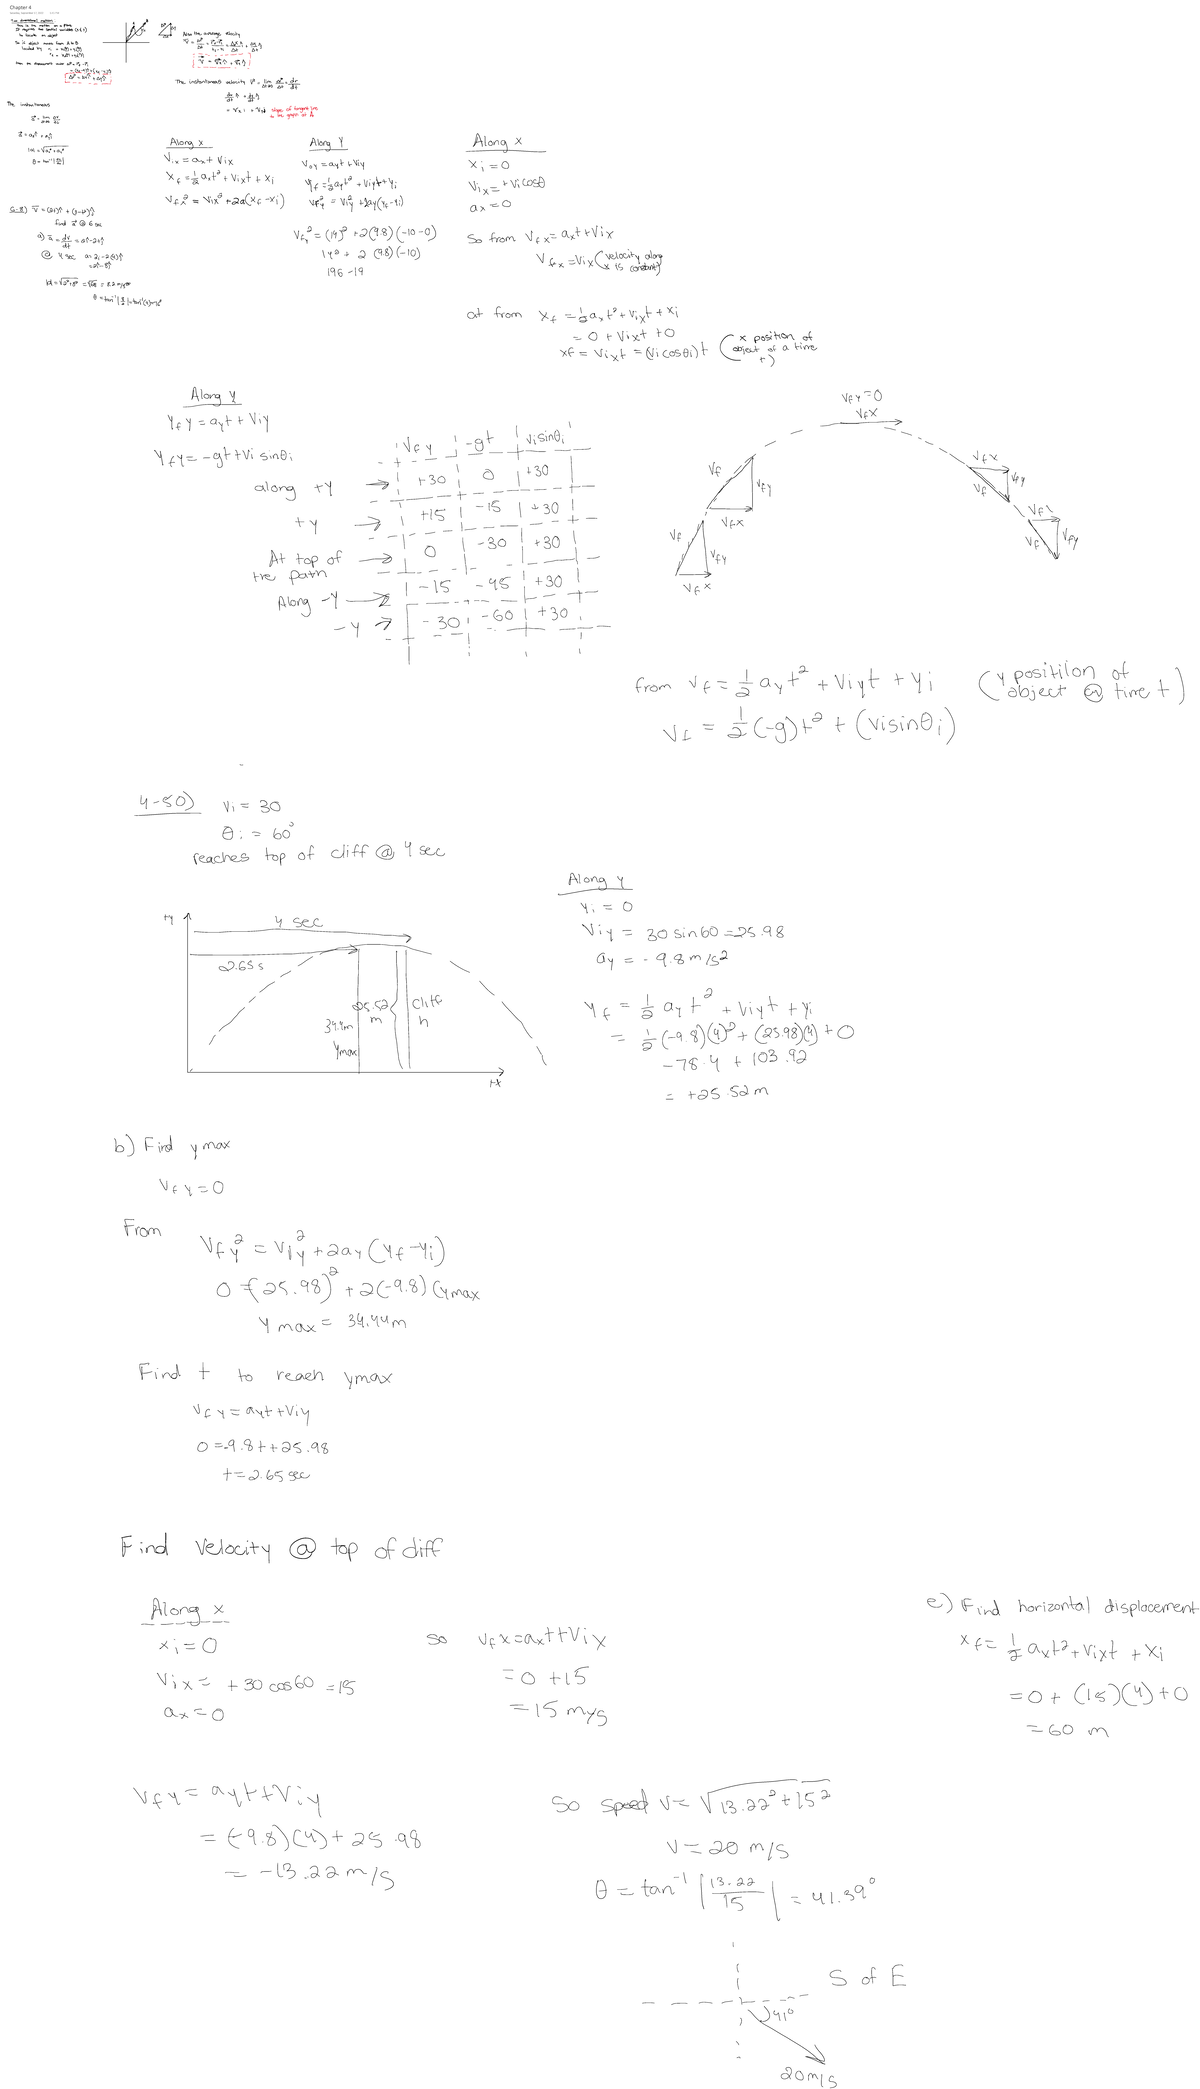 Chapter 4
Two dimensional motion
Also the average velocity
The instantaneous velocity
slope of tangent line
The instantaneous
Along x
V_fx = a_xt + V_ix
X_f = 1/2 a_xt² + V_ixt + X_i
V_fx² = V_ix² + 2a(X_f - X_i)
Along Y
V_fy = a_yt + V_iy
Y_f = 1/2 a_yt² + V_iyt + Y_i
V_fy² = V_iy² + 2a_y(Y_f - Y_i)
V_fy² = (14)² + 2(9.8)(-10-0)
14² + 2 (9.8)(-10)
196 - 19
Along x
X_i = 0
V_ix = +V_i cosθ
a_x = 0
So from V_fx = a_xt + V_ix
V_fx = V_ix (velocity along
x is constant)
at from X_f = 1/2 a_xt² + V_ixt + X_i
= 0 + V_ixt + 0
xf = V_ixt = (V_i cosθ_i)t (x position of
object of a time
t)
find a @ 6 sec
Along Y
Y_fY = a_yt + V_iy
Y_fY = -gt + V_i sinθ_i
V_fy -gt v_i sinθ_i
along +Y → +30 0 +30
+y → +15 -15 +30
At top of → 0 -30 +30
the path
Along -Y → -15 -45 +30
-Y → -30 -60 +30
V_fY = 0
V_fX
V_f V_fy V_fx
V_f V_fy V_fx
V_fx V_fy V_f
V_fy V_f
from V_f = 1/2 a_yt² + V_iyt + Y_i (y positilon of
object @ time t)
V_f = 1/2 (-g)t² + (v_i sinθ_i)
4-50) V_i = 30
θ_i = 60°
reaches top of cliff @ 4 sec
+y 4 sec
2.65 s
25.52 m
Cliff h
34.4m
Ymax
+x
Along Y
Y_i = 0
V_iy = 30 sin60 = 25.98
a_y = -9.8 m/s²
Y_f = 1/2 a_yt² + V_iyt + Y_i
= 1/2 (-9.8)(4)² + (25.98)(4) + 0
-78.4 + 103.92
= +25.52 m
b) Find ymax
V_fY = 0
From
V_fy² = V_iy² + 2a_y (Y_f - Y_i)
0 = (25.98)² + 2(-9.8)(ymax
Y max = 34.44m
Find t to reach ymax
V_fy = a_yt + V_iy
0 = -9.8t + 25.98
t = 2.65 sec
Find Velocity @ top of cliff
Along x
x_i = 0
V_ix = +30 cos60 = 15
a_x = 0
so V_fx = a_xt + V_ix
= 0 + 15
= 15 m/s
e) Find horizontal displacement
X_f = 1/2 a_xt² + V_ixt + X_i
= 0 + (15)(4) + 0
= 60 m
V_fy = a_yt + V_iy
= (-9.8)(4) + 25.98
= -13.22 m/s
So speed V = √13.22² + 15²
V = 20 m/s
θ = tan⁻¹ |13.22/15| = 41.39°
S of E
41°
20m/s